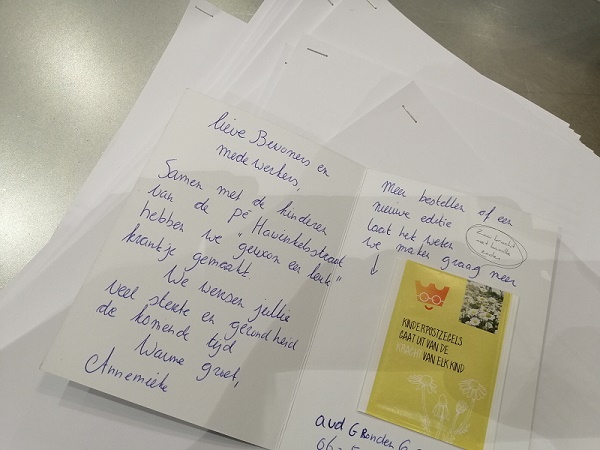 lieve Bewoners en
medewerkers,
Samen met de kinderen
van de pé Havinkebstraat
hebben we "gewoon een leuk"
krantje gemaakt.
We wensen jullie
veel sterkte en gezondheid
de komende tijd
Warme groet,
Annemieke
Meer bestellen of een
nieuwe editie
laat het weten
we maken graag meer
↓
KINDERPOSTZEGELS
GAAT UIT VAN DE
KRACHT VAN ELK KIND